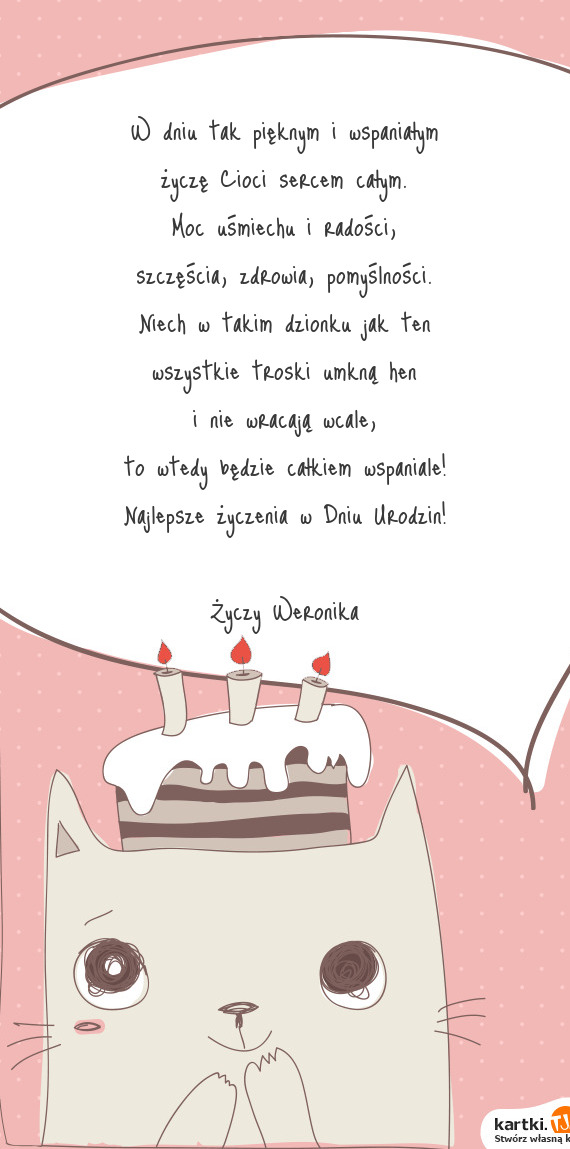 W dniu tak pięknym i wspaniałym
życzę Cioci sercem całym.
Moc uśmiechu i radości,
szczęścia, zdrowia, pomyślności.
Niech w takim dzionku jak ten
wszystkie troski umkną hen
i nie wracają wcale,
to wtedy będzie całkiem wspaniale!
Najlepsze życzenia w Dniu Urodzin!
Życzy Weronika
kartki.TJ
Stwórz własną k